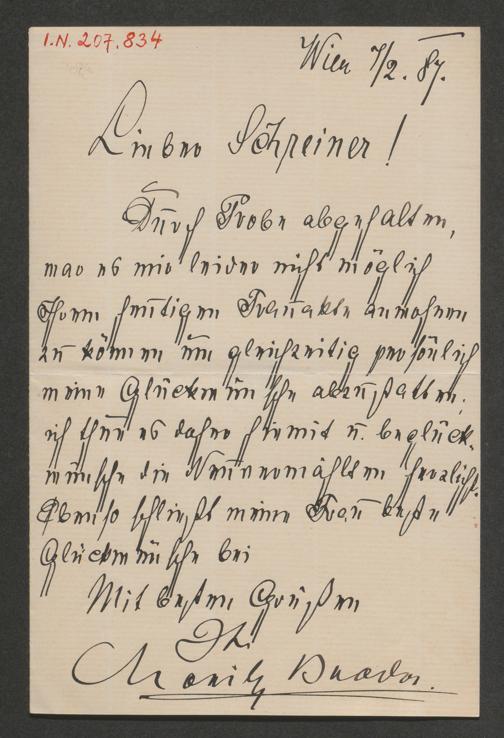 I.N. 207.834
Wien 7/2. 87.
Lieber Schreiner!
Durch Probe abgehalten,
war es mir leider nicht möglich
Ihrem heutigen Trauakte anwohnen
zu können um gleichzeitig persönlich
meine Glückwünsche abzustatten;
ich thue es daher hiemit u. beglück-
wünsche die Neuvermählten herzlichst.
Ebenso schließt meine Frau beste
Glückwünsche bei
Mit besten Grüßen
Ihr
Moritz